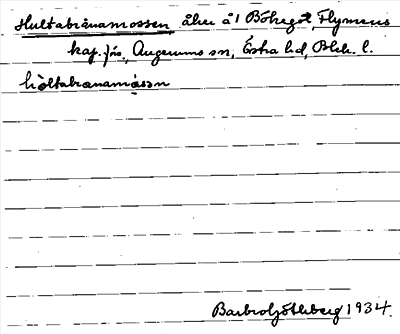 Hultabränamossen, åker å 1 Bökegöl, Flymens
kap. förs., Augerums sn, Östra hd, Blek. l.
hòltabranamåsən
Barbro Göthberg 1934.